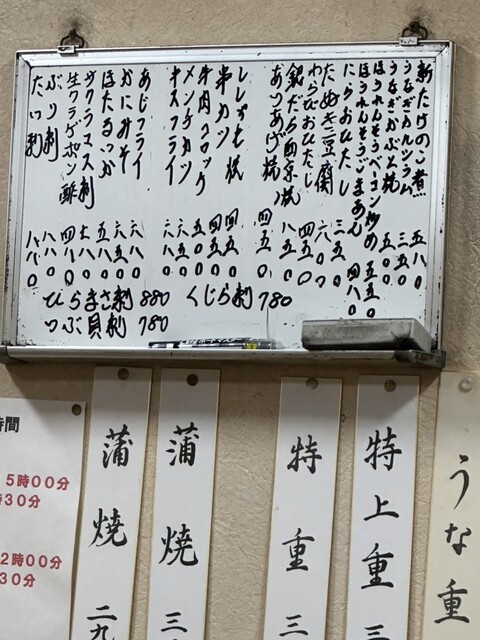 新たけのこ煮 五八〇
うなぎカルシウム 三五〇
うなぎかぶと焼 五〇〇
ほうれんそうベーコン炒め 五五〇
ほうれんそうごまあえ 四八〇
にらおひたし 三五〇
たぬき豆腐 六〇〇
わらびおひたし 四五〇
銀だら西京焼 八五〇
あつあげ焼 四五〇
ししゃも焼 四五〇
串カツ 四五〇
牛肉コロッケ 五〇〇
メンチカツ 六五〇
キスフライ 六八〇
あじフライ 六五〇
かにみそ 六五〇
ほたるいか 五八〇
サクラマス刺 七八〇
生クラゲポン酢 四八〇
ぶり刺 八八〇
たい刺 八八〇
ひらまさ刺 880 くじら刺 780
つぶ貝刺 780
うな重
特上重 三
特重 三
蒲焼 三
蒲焼 二九
時間
5時00分
時30分
2時00分
30分